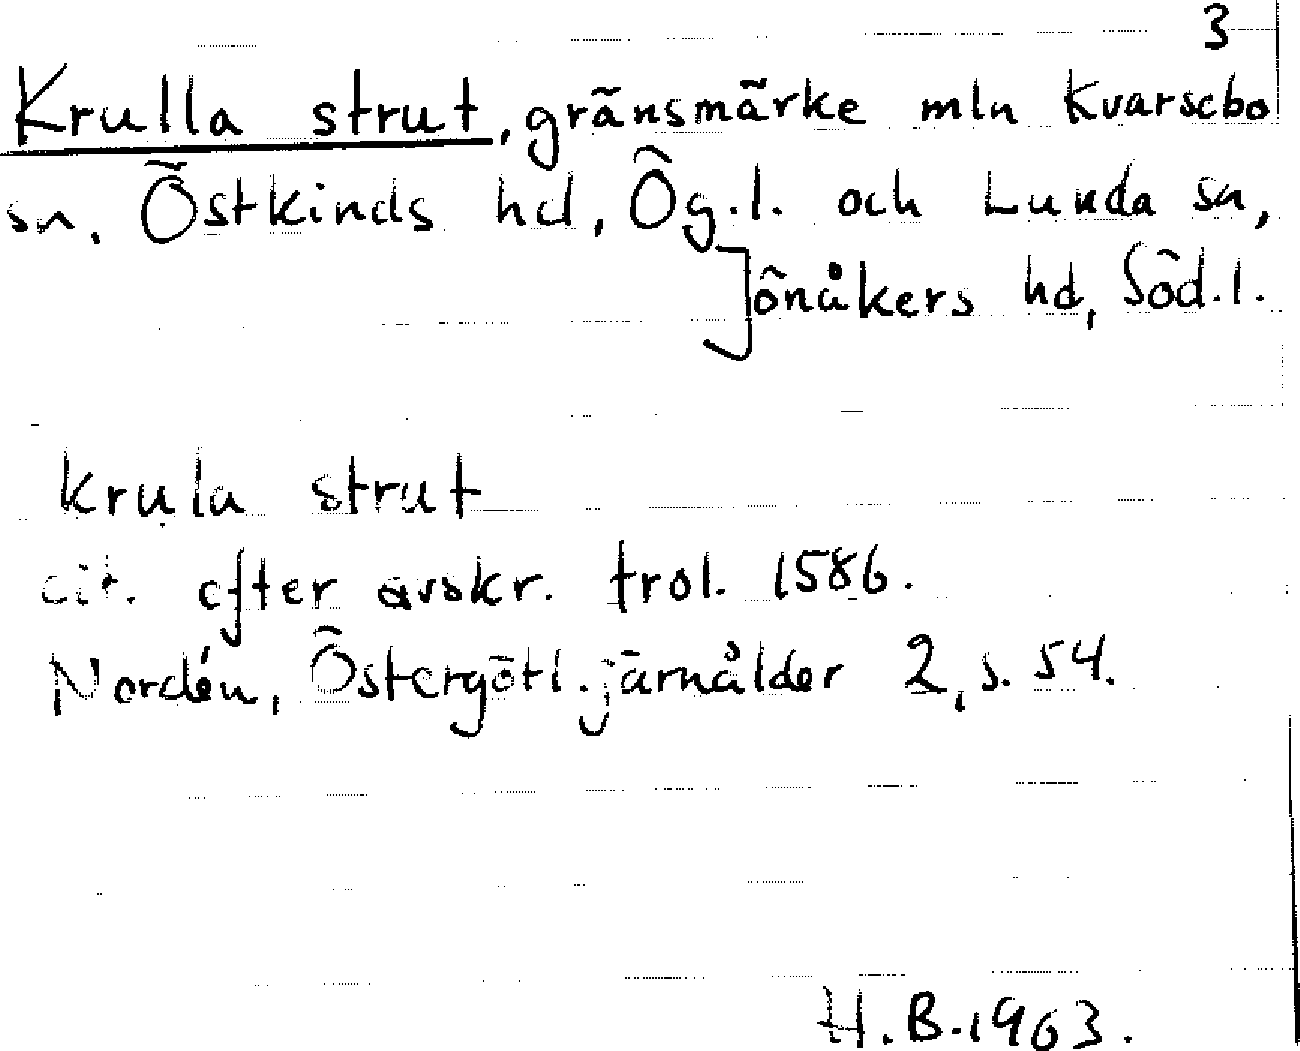 3
Krulla strut, gränsmärke mln Kvarsebo
sn, Östkinds hd, Ög.l. och Lunda sn,
Jönåkers hd, Söd.l.
krula strut
cit. efter avskr. trol. 1586.
Nordén, Östergötl. järnålder 2, s. 54.
H.B. 1963.